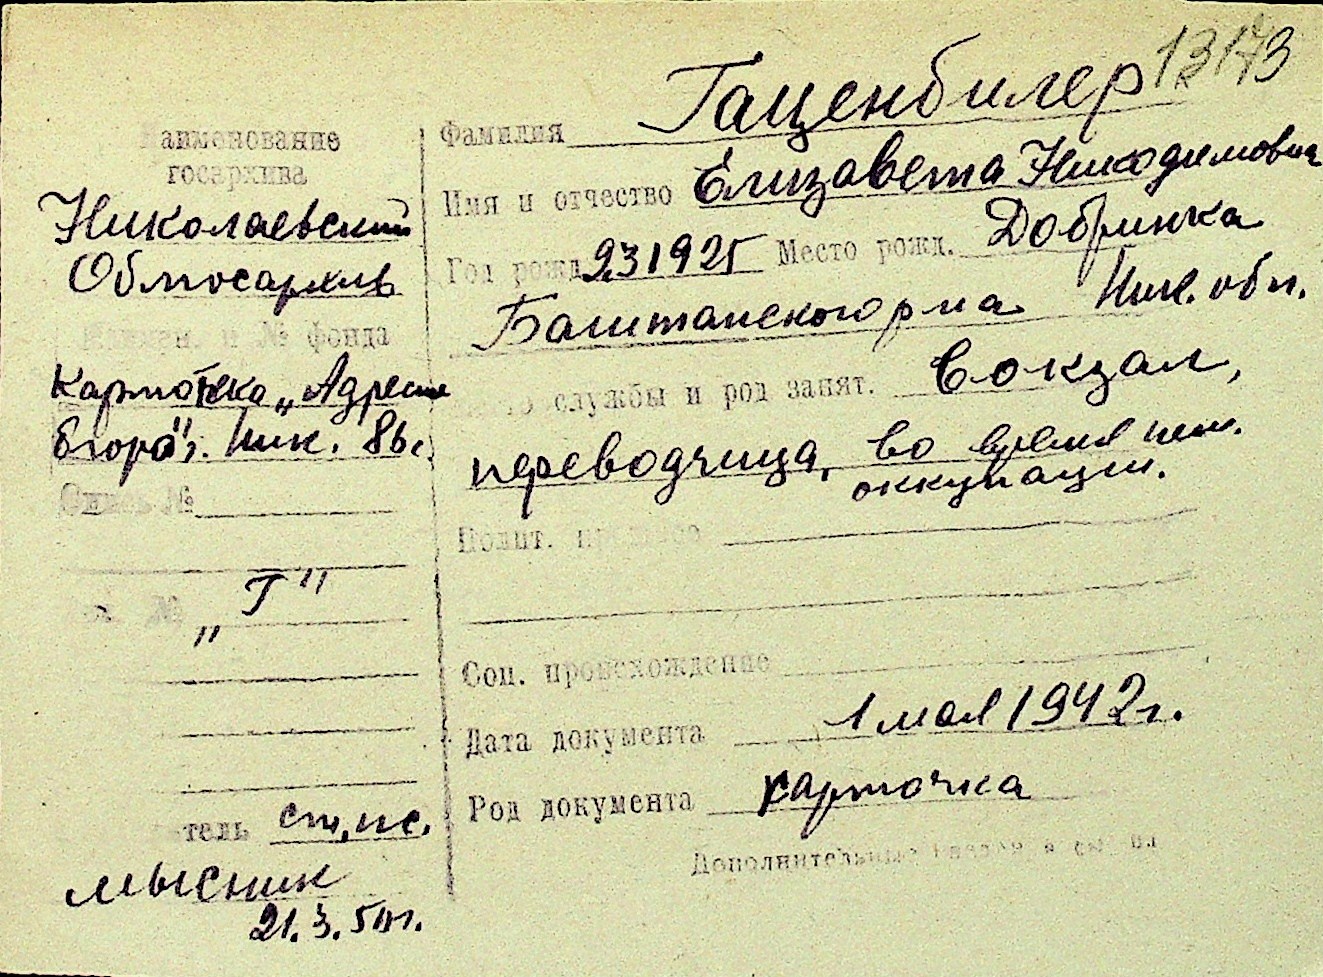 13173
Наименование
госархива
Николаевский
Облгосархив
Наимен. и № фонда
Картотека „Адресное
бюро" г. Ник.
Опись №
№ „Г"
тель ст. лс.
Мысник
21.3.50г.
Фамилия Гаценбилер
Имя и отчество Елизавета Никодимовна
Год рожд 9.3 1925 Место рожд. Добринка
Баштанского р-на Ник. обл.
службы и род занят. Вокзал,
переводчица, во время нем.
оккупации.
Полит. прошлое
Соц. происхождение
Дата документа 1 мая 1942г.
Род документа карточка
Дополнительные